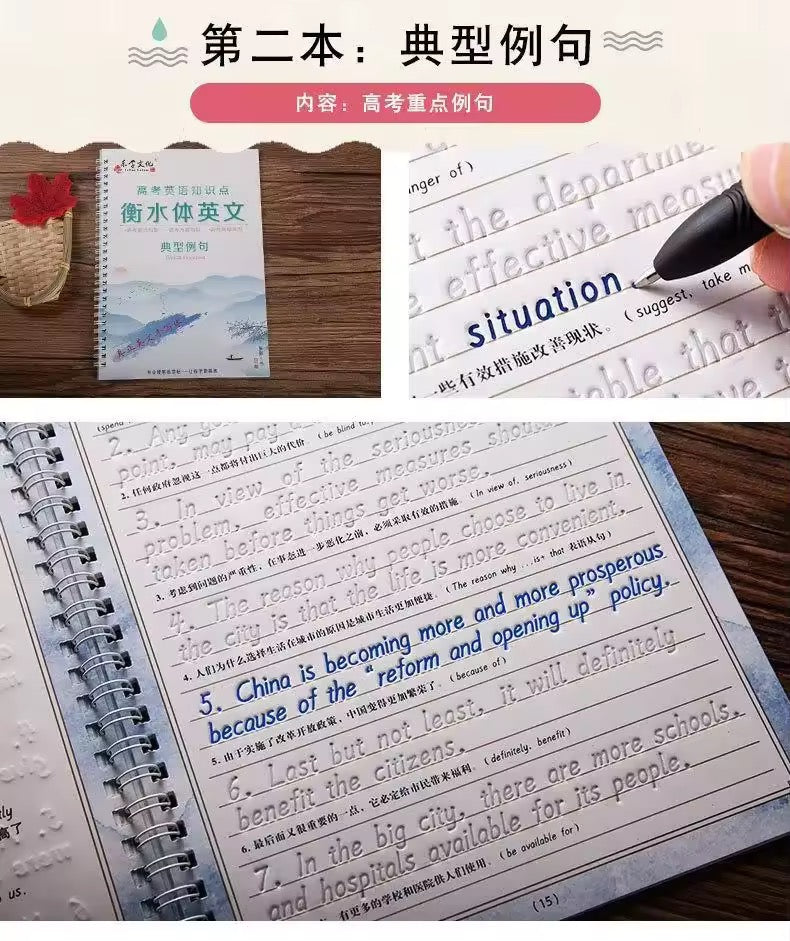 第二本：典型例句
内容：高考重点例句
东宇文化
高考英语知识点
衡水体英文
典型例句
anger of)
t the departm
e effective measu
situation
(suggest, take m
一些有效措施改善现状。
table that t
2. Any go
point, may pay a
2. 任何政府忽视这一点都将付出巨大的代价 (be blind to,
3. In view of the seriousnes
problem, effective measures should
taken before things get worse.
3. 考虑到问题的严重性，在事态进一步恶化之前，必须采取有效的措施 (In view of, seriousness)
4. The reason why people choose to live in
the city is that the life is more convenient.
4. 人们为什么选择生活在城市的原因是城市生活更加便捷。(The reason why ...is+ that 表语从句)
5. China is becoming more and more prosperous
because of the “reform and opening up” policy.
5. 由于实施了改革开放政策，中国变得更加繁荣了。(because of)
6. Last but not least, it will definitely
benefit the citizens.
6. 最后而又很重要的一点，它必定给市民带来福利。(definitely, benefit)
7. In the big city, there are more schools,
and hospitals available for its people.
有更多的学校和医院供人们使用。(be available for)
us.
(15)